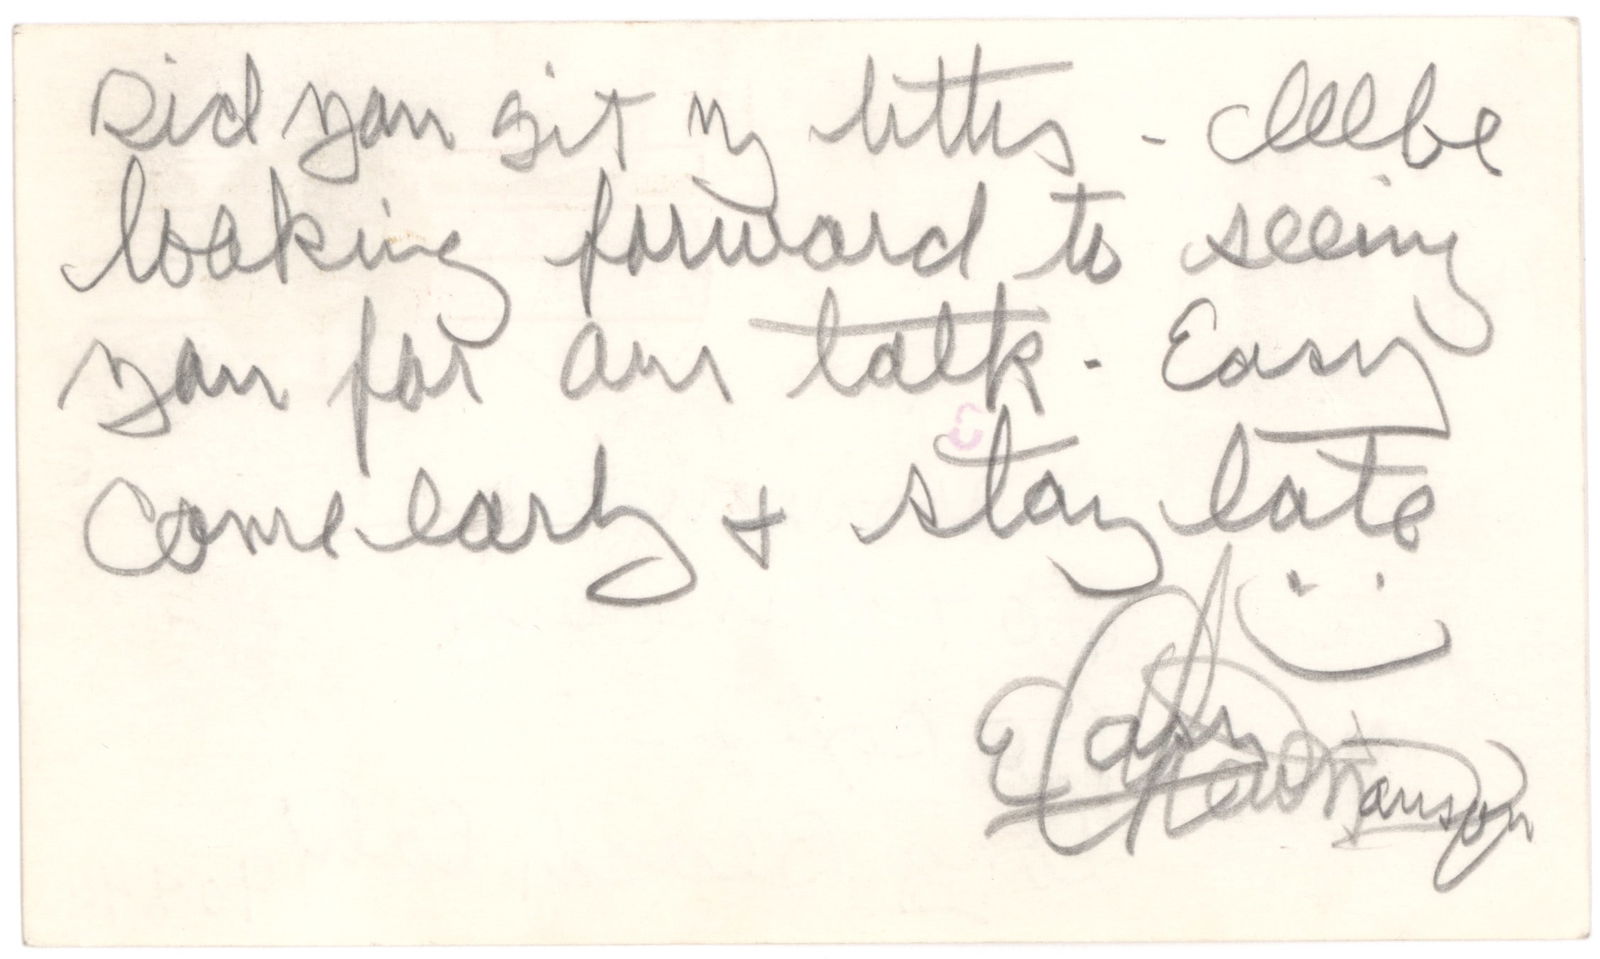 Did you git my letters - Ill be
looking forward to seeing
you for our talk - Easy
Come early + stay late
Easy
Manson